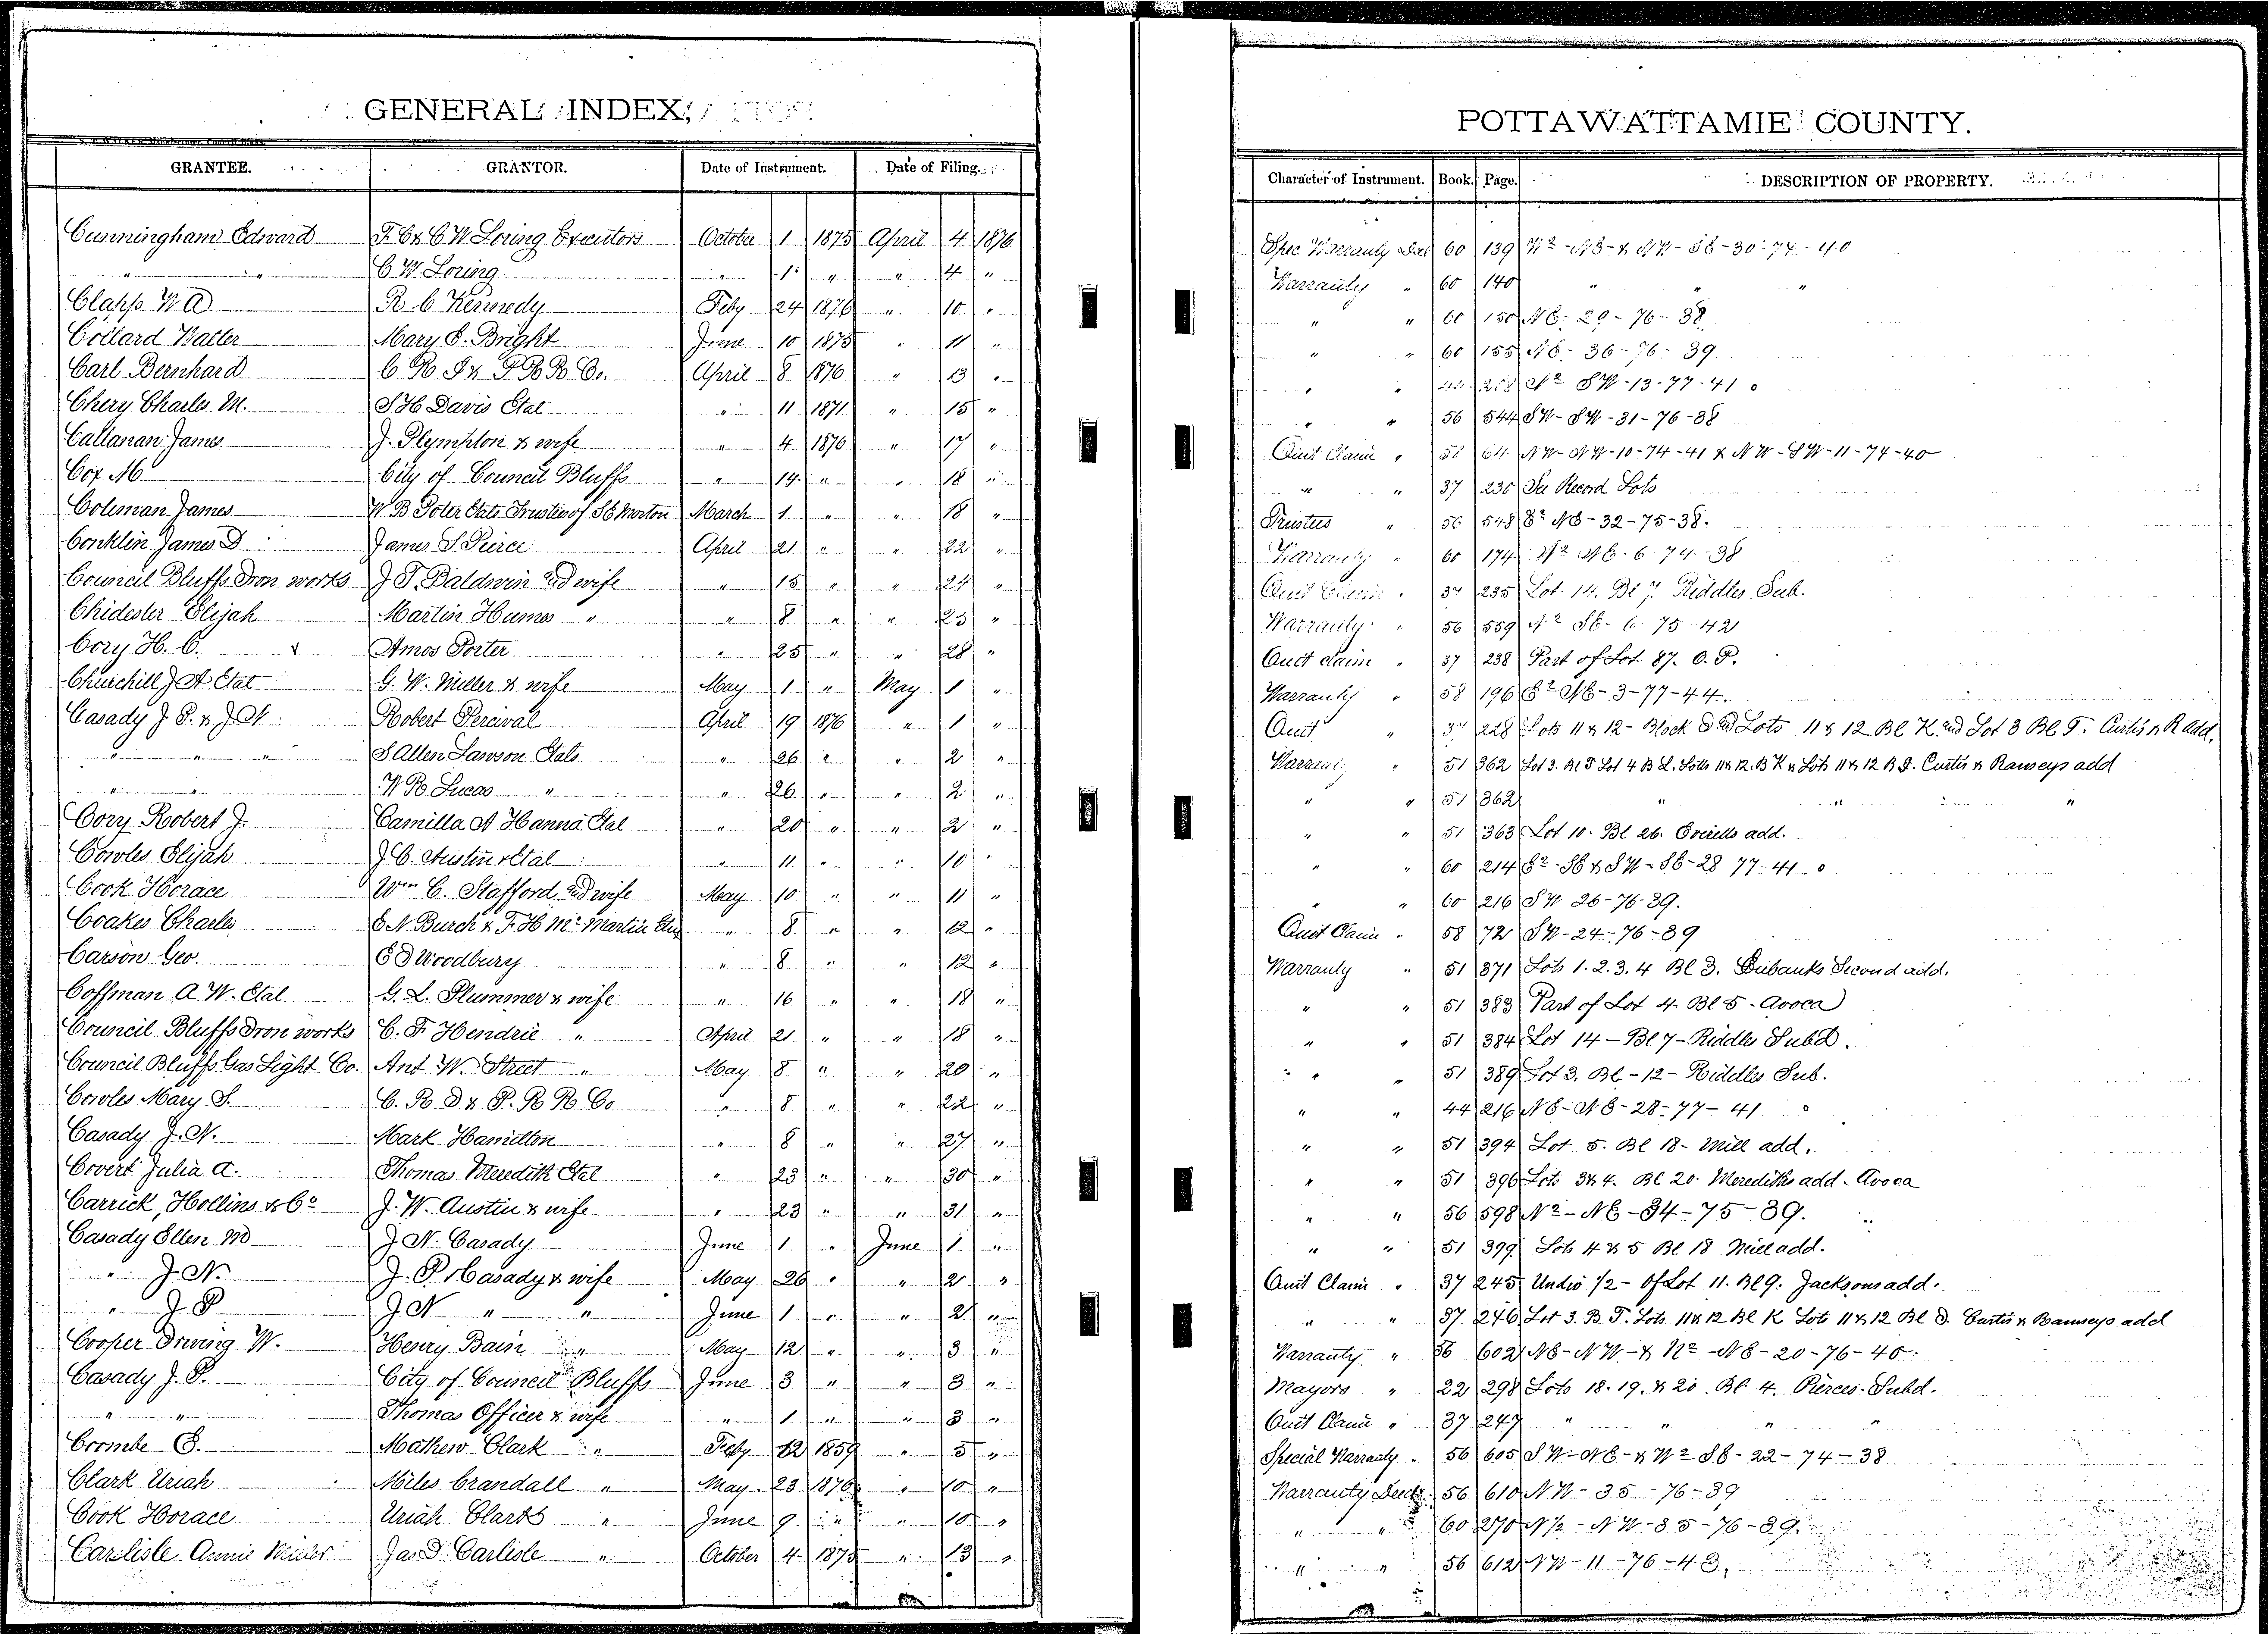 GENERAL INDEX,
GRANTEE. GRANTOR. Date of Instrument. Date of Filing.
Cunningham Edward F. C & C W Loring Executors October 1 1875 April 4 1876
" " C. W. Loring " 1 " " 4 "
Clapp W A R. C Kennedy Feby 24 1876 " 10 "
Collard Walter Mary E. Bright June 10 1875 " 11 "
Carl Bernhard C R I & P R R Co. April 8 1876 " 13 "
Chery Charles M. S H Davis Etal " 11 1871 " 15 "
Callanan James J. Plympton & wife " 4 1876 " 17 "
Cox M City of Council Bluffs " 14 " " 18 "
Coleman James W B Porter Etals Trustees of S C Morton March 1 " " 18 "
Conklin James D James S Pierce April 21 " " 22 "
Council Bluffs Iron works J. T. Baldwin and wife " 15 " " 24 "
Chidester Elijah Martin Humes " " 8 " " 25 "
Cory H. C. Amos Porter " 25 " " 28 "
Churchill J A Etal G. W. Miller & wife May 1 " May 1 "
Casady J. P. & J. N. Robert Percival April 19 1876 " 1 "
" " " S Allen Lawson Etals " 26 " " 2 "
" " W R Lucas " " 26 " " 2 "
Cory Robert J. Camilla A Hanna Etal " 20 " " 2 "
Cowles Elijah J. C. Austin & Etal " 11 " " 10 "
Cook Horace Wm C. Stafford and wife May 10 " " 11 "
Coakes Charles E N Burch & F. H Mc Martin " 8 " " 12 "
Carson Geo. E D Woodbury " 8 " " 12 "
Coffman A. W. Etal G. L. Plummer & wife " 16 " " 18 "
Council Bluffs Iron works C. F Hendrie " April 21 " " 18 "
Council Bluffs Gas Light Co. Ant W. Street " May 8 " " 20 "
Cowles Mary S. C. R. I & P. R R Co " 8 " " 22 "
Casady J. N. Mark Hamilton " 8 " " 27 "
Covert Julia A. Thomas Meredith Etal " 23 " " 30 "
Carrick, Hollins & Co J. W. Austin & wife " 23 " " 31 "
Casady Ellen M J N. Casady June 1 " June 1 "
" J. N. J. P. Casady & wife May 26 " " 2 "
" J P J N " " June 1 " " 2 "
Cooper Irving W. Henry Bain " May 12 " " 3 "
Casady J. P. City of Council Bluffs June 3 " " 3 "
" " Thomas Officer & wife " 1 " " 3 "
Coombe E. Mathew Clark " Feby 12 1859 " 5 "
Clark Uriah Miles Crandall " May 23 1876 " 10 "
Cook Horace Uriah Clark " June 9 " " 10 "
Carlisle Annie Jas D. Carlisle " October 4 1875 " 13 "
POTTAWATTAMIE COUNTY.
Character of Instrument. Book. Page. DESCRIPTION OF PROPERTY.
Spec Warranty Deed 60 139 W2 - NE - & NW - SE - 30 - 74 - 40
Warranty " 60 140 " " "
" " 60 150 NE - 29 - 76 - 38
" " 60 155 NE - 36 - 76 - 39
" " 44 N2 SW - 13 - 77 - 41
" " 56 544 SW - SW - 31 - 76 - 38
Quit Claim " 58 64 NW - NW - 10 - 74 - 41 & NW - SW - 11 - 74 - 40
" " 37 230 See Record Lots
Trustees " 56 548 E2 NE - 32 - 75 - 38.
Warranty " 60 174 NE - 6 - 74 - 38
Quit Claim " 37 235 Lot 14. Bl 7 Riddles Sub.
Warranty " 56 559 SE - 6 - 75 - 42
Quit claim " 37 238 Part of Lot 87. O. P.
Warranty " 58 196 E2 NE - 3 - 77 - 44.
Quit " 37 228 Lots 11 & 12 - Block D and Lots 11 & 12 Bl K. and Lot 3 Bl T. Curtis & R add.
Warranty " 51 362 Lot 3. Bl T Lot 4 B L. Lotts 11 & 12. B K & Lots 11 & 12 B D. Curtis & Ramseys add
" " 51 362 " " " "
" " 51 363 Lot 10. Bl 26. Everetts add.
" " 60 214 E2 - SE & SW - SE - 28 - 77 - 41
" " 60 216 SW 26 - 76 - 39.
Quit Claim " 58 72 SW - 24 - 76 - 39
Warranty " 51 371 Lots 1. 2. 3. 4 Bl 3. Eubanks Second add.
" " 51 383 Part of Lot 4. Bl 5 - Avoca
" " 51 384 Lot 14 - Bl 7 - Riddles Subd.
" " 51 389 Lot 3. Bl - 12 - Riddles Sub.
" " 44 216 NE - NE - 28 - 77 - 41
" " 51 394 Lot 5. Bl 18 - Mill add.
" " 51 396 Lots 3 & 4. Bl 20. Merediths add. Avoca
" " 56 598 N2 - NE - 34 - 75 - 39.
" " 51 399 Lots 4 & 5 Bl 18 Mill add.
Quit Claim " 37 245 Undiv 1/2 - of Lot 11. Bl 9. Jacksons add.
" " 37 246 Lot 3. B. T. Lots 11 & 12 Bl K Lots 11 & 12 Bl D. Curtis & Ramseys add
Warranty " 56 602 NE - NW - & N2 - NE - 20 - 76 - 40.
Mayors " 22 298 Lots 18. 19. & 20. Bl 4. Pierces Subd.
Quit Claim " 37 247 " " " "
Special Warranty " 56 605 SW - NE - & W2 SE - 22 - 74 - 38
Warranty Deed 56 610 NW - 35 - 76 - 39
" " 60 270 N 1/2 - NW - 35 - 76 - 39.
" " 56 612 NW - 11 - 76 - 43.